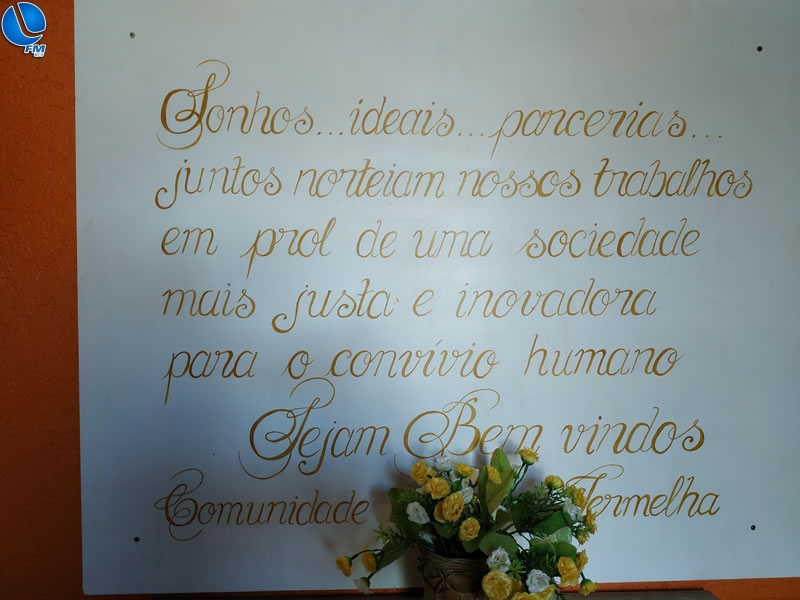 FM
Sonhos...ideais...parcerias...
juntos norteiam nossos trabalhos
em prol de uma sociedade
mais justa e inovadora
para o convívio humano
Sejam Bem vindos
Comunidade Vermelha